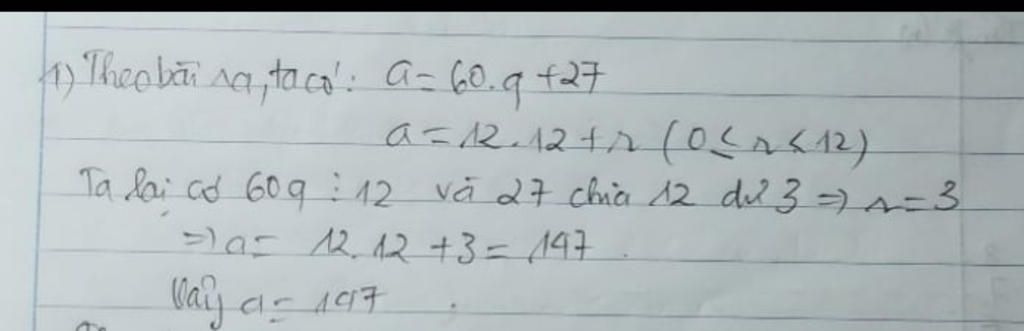 1) Theo bài ra, ta có: a = 60.q + 27
a = 12.12 + r (0 ≤ r < 12)
Ta lại có 60q ⋮ 12 và 27 chia 12 dư 3 => r = 3
=> a = 12.12 + 3 = 147.
Vậy a = 147